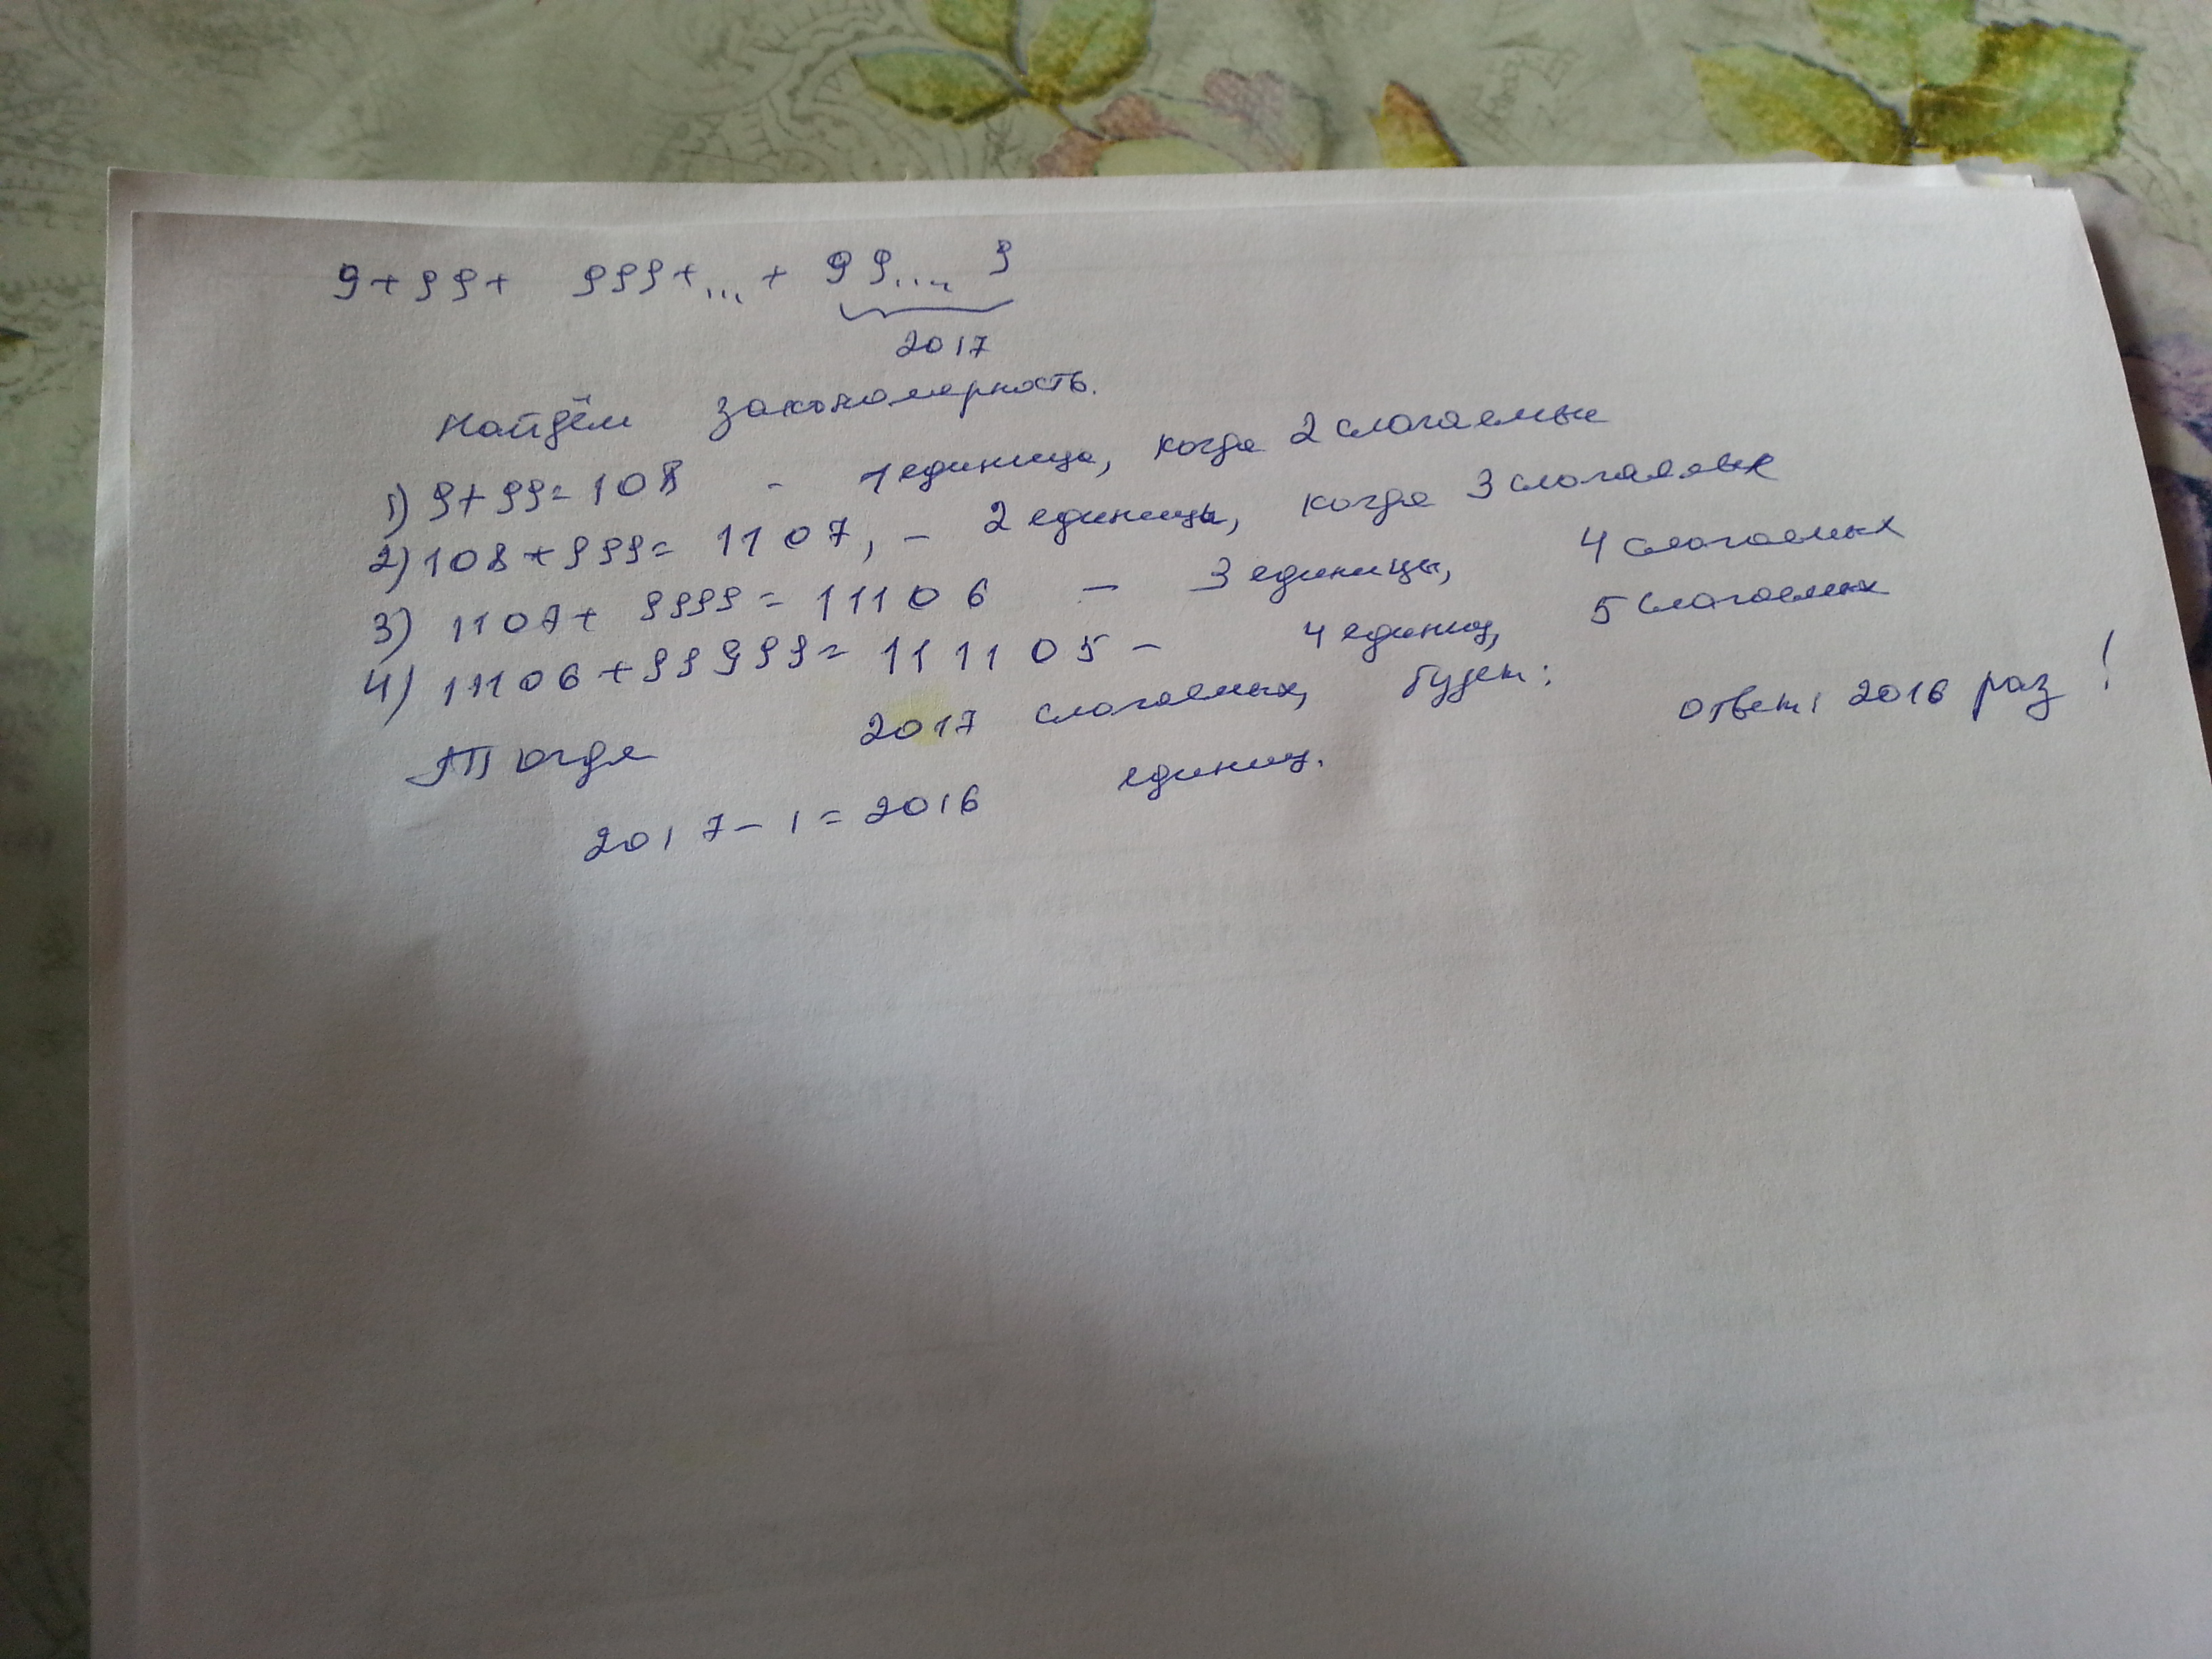 9+99+ 999+...+ 99.... 9
2017
Найдём закономерность.
1) 9+99=108 - 1 единица, когда 2 слагаемые
2) 108+999= 1107, - 2 единицы, когда 3 слагаемых
3) 1107+ 9999= 11106 - 3 единицы, 4 слагаемых
4) 11106+99999= 111105 - 4 единиц, 5 слагаемых
Тогда 2017 слагаемых, будет:
2017-1=2016 единиц.
ответ: 2016 раз!